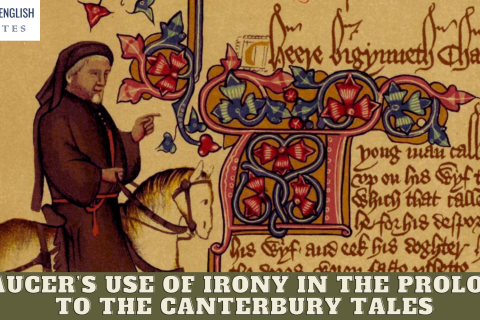 ENGLISH
TES
Heere bigynneth Cha
yong man call
vp on his wyf t
Which that calle
he for his despor
his wyf and eek his doghter h
AUCER'S USE OF IRONY IN THE PROLO
TO THE CANTERBURY TALES